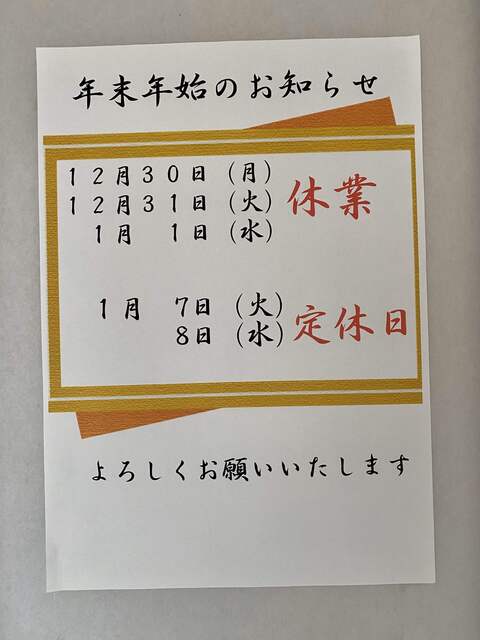 年末年始のお知らせ
12月30日(月)
12月31日(火) 休業
1月 1日(水)
1月 7日(火)
8日(水) 定休日
よろしくお願いいたします